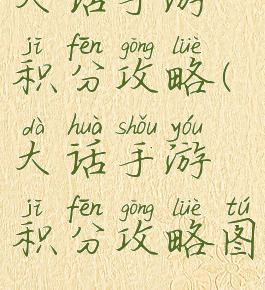 大话手游
jī fēn gōng lüè
积分攻略(
dà huà shǒu yóu
大话手游
jī fēn gōng lüè tú
积分攻略图